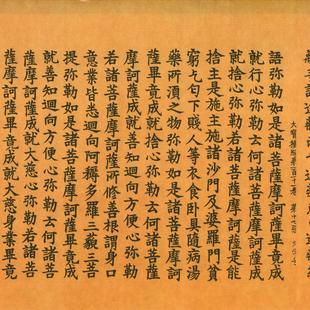 語彌勒如是諸菩薩摩訶薩畢竟成
就行心彌勒若諸菩薩摩訶薩成
就捨心弥勒如是諸菩薩摩訶薩是能
捨主是施主施諸沙門及婆羅門貧
窮乞匂下賤人等衣食卧具隨病湯
藥所須之物弥勒如是諸菩薩摩訶
薩畢竟成就捨心弥勒若諸菩薩
摩訶薩成就善知迴向方便心弥勒
若諸菩薩摩訶薩所修善根謂身口
意業皆悉迴向阿耨多羅三藐三菩
提弥勒如是諸菩薩摩訶薩畢竟成
就善知迴向方便心弥勒若諸菩
薩摩訶薩成就大慈心弥勒若諸菩
薩摩訶薩畢竟成就大慈身業畢竟